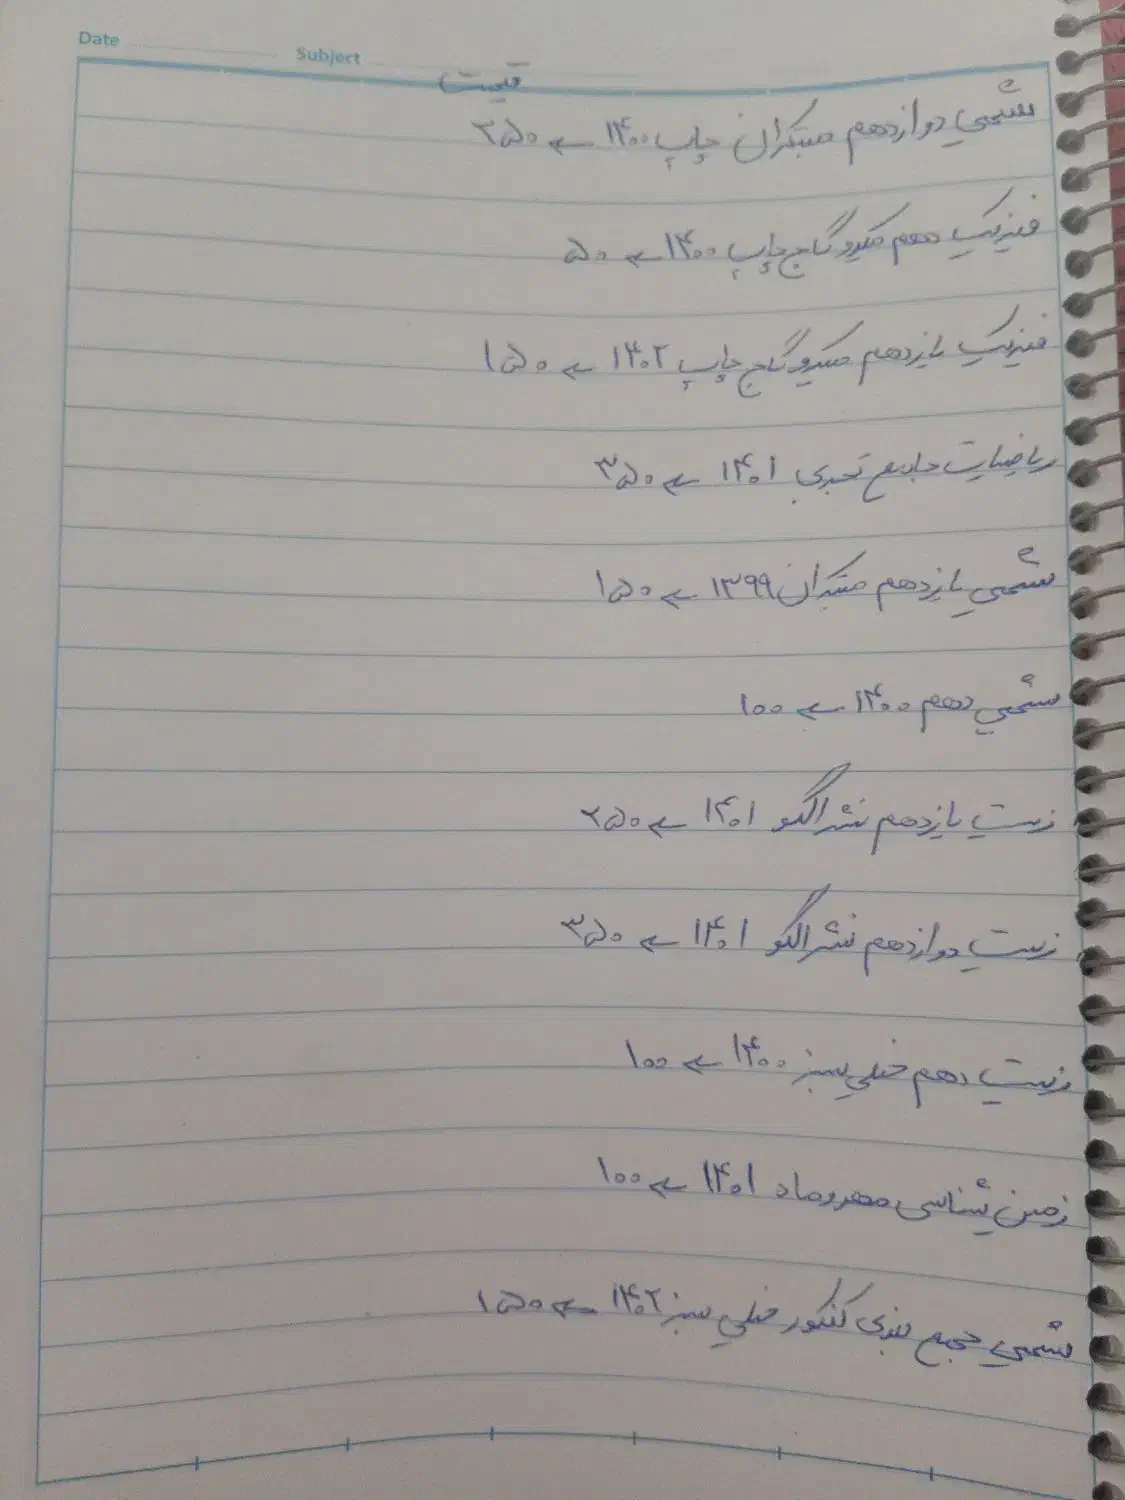 Date
Subject
قیمت
شیمی دوازدهم مبتکران چاپ ۱۴۰۰ ← ۲۵۰
فیزیک دهم میکرو گاج چاپ ۱۴۰۰ ← ۵۰
فیزیک یازدهم میکرو گاج چاپ ۱۴۰۲ ← ۱۵۰
ریاضیات جامع تجربی ۱۴۰۱ ← ۳۵۰
شیمی یازدهم مبتکران ۱۳۹۹ ← ۱۵۰
شیمی دهم ۱۴۰۰ ← ۱۰۰
زیست یازدهم نشر الگو ۱۴۰۱ ← ۲۵۰
زیست دوازدهم نشر الگو ۱۴۰۱ ← ۳۵۰
زیست دهم خیلی سبز ۱۴۰۰ ← ۱۰۰
زمین شناسی مهروماه ۱۴۰۱ ← ۱۰۰
شیمی جمع بندی کنکور خیلی سبز ۱۴۰۲ ← ۱۵۰